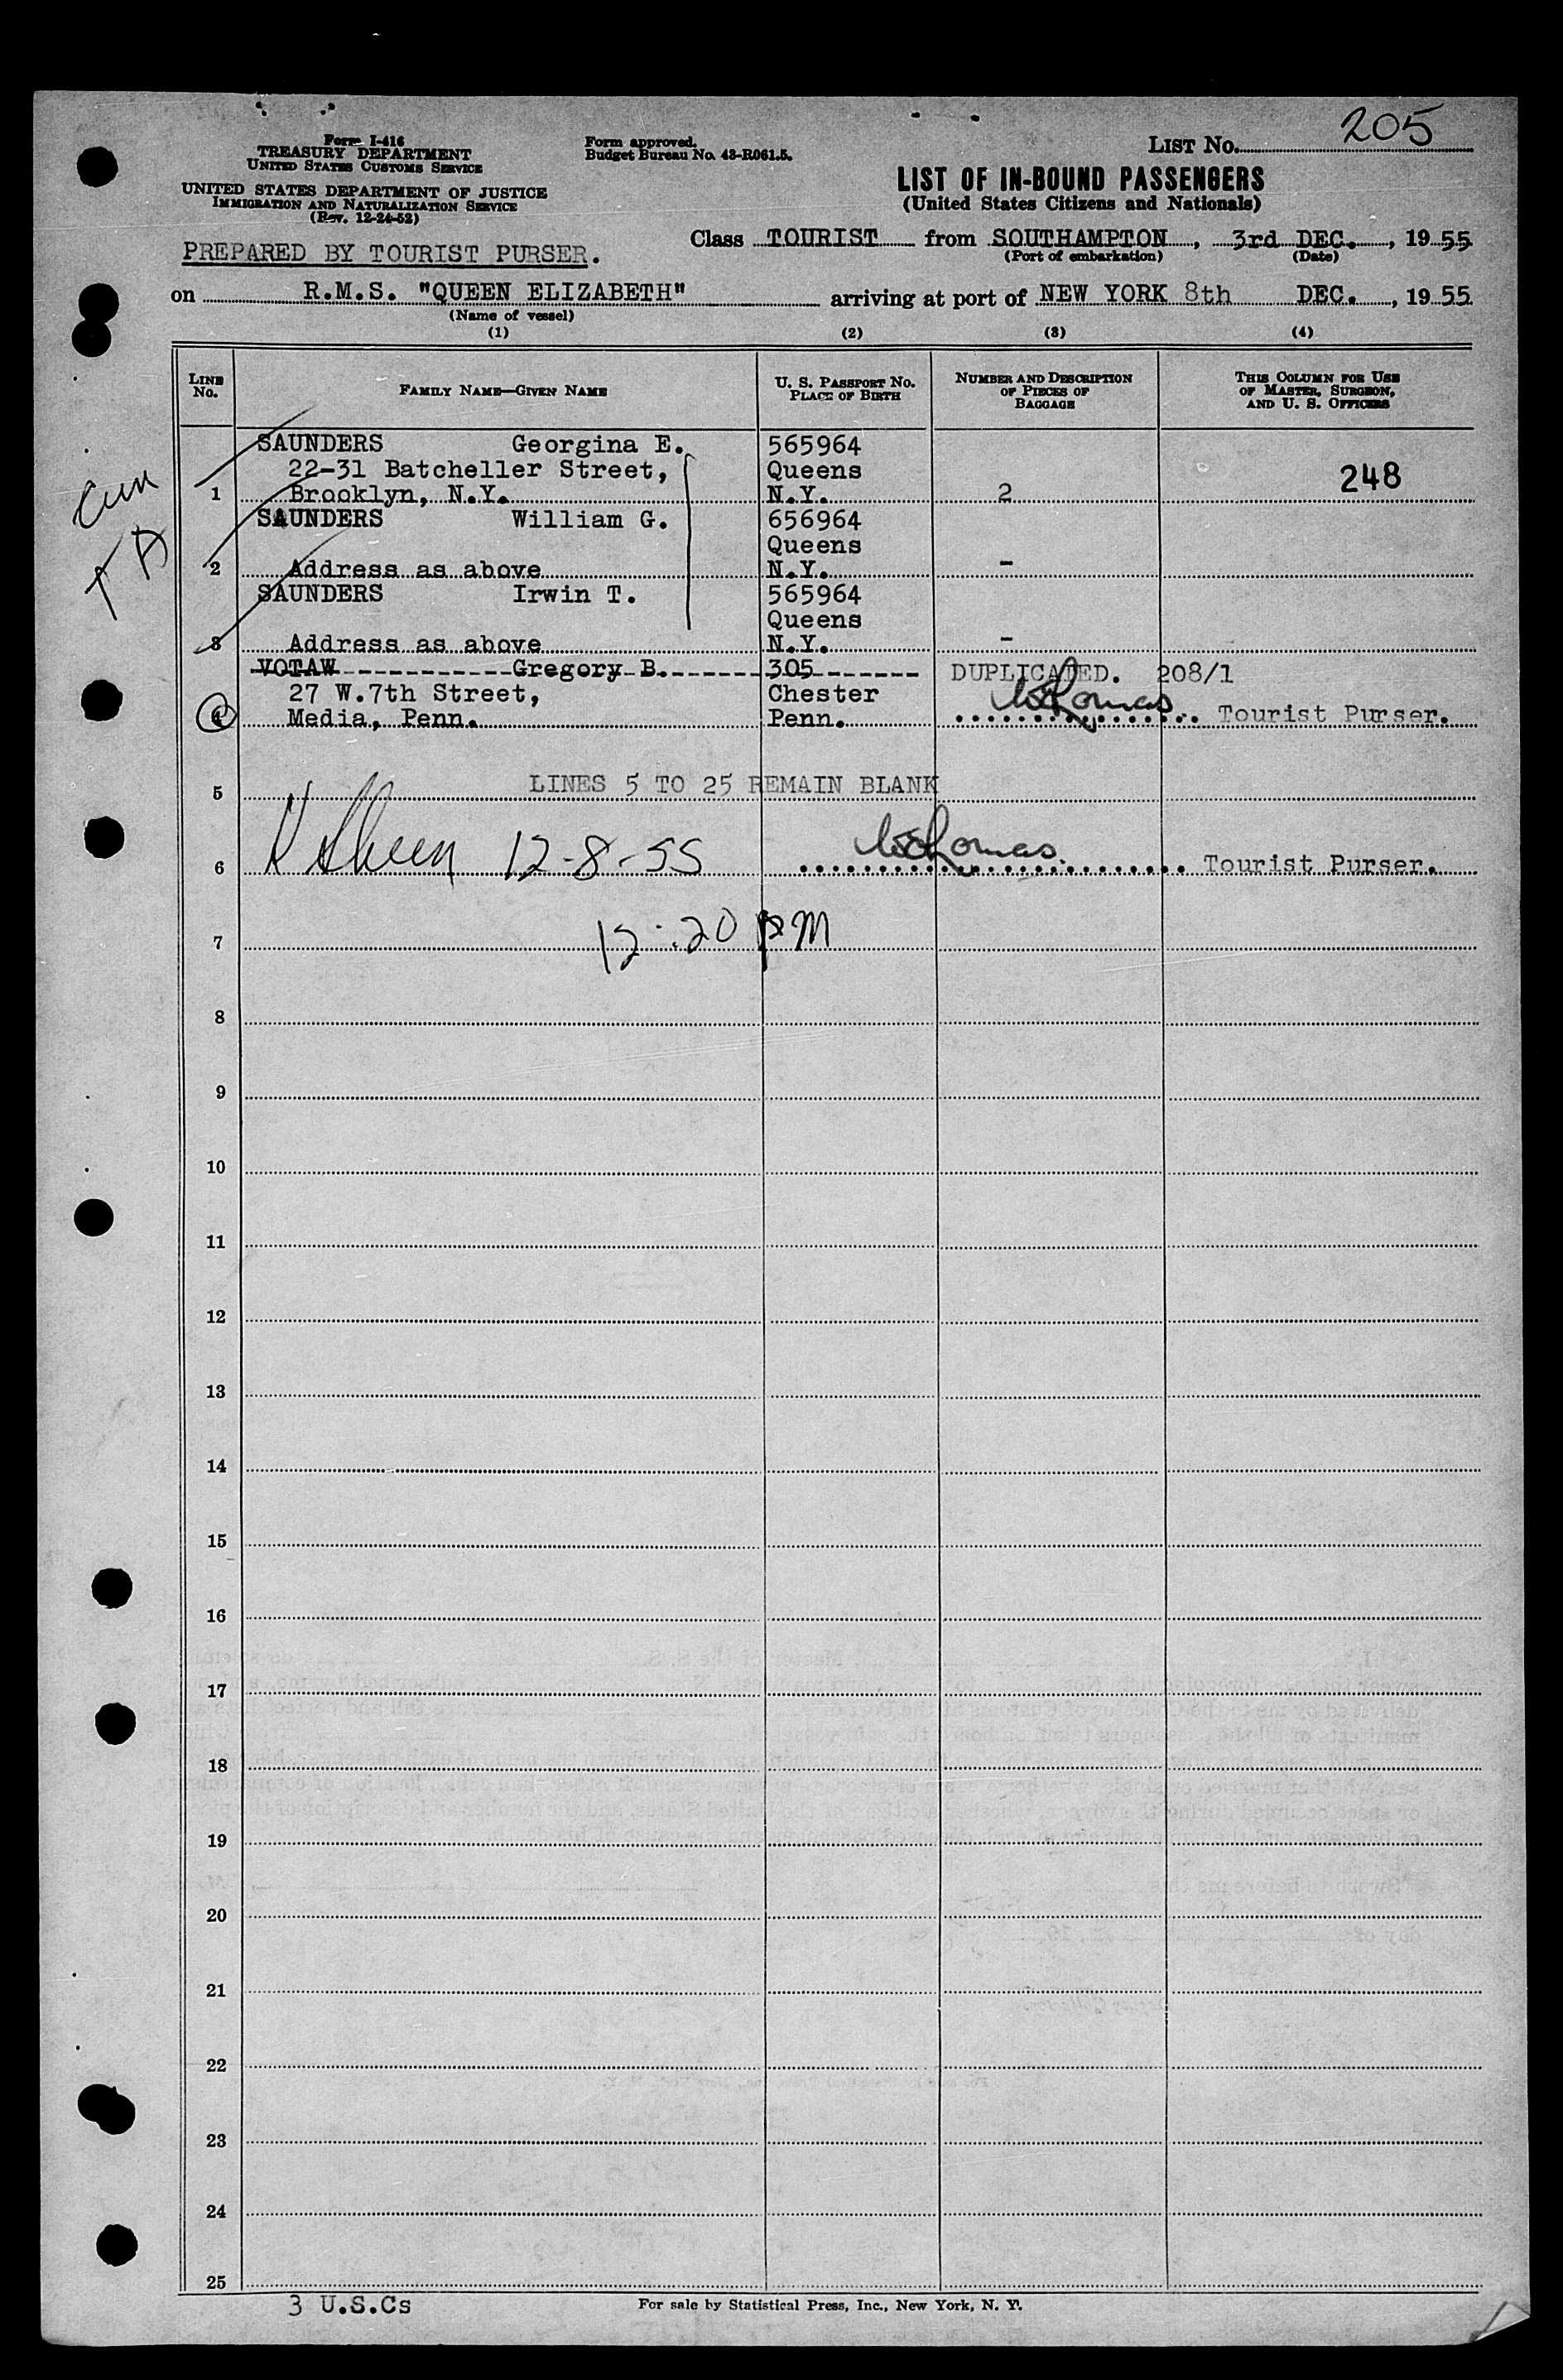 205
Form I-416
TREASURY DEPARTMENT
UNITED STATES CUSTOMS SERVICE
Form approved.
Budget Bureau No. 43-R061.5.
LIST NO.
UNITED STATES DEPARTMENT OF JUSTICE
IMMIGRATION AND NATURALIZATION SERVICE
(Rev. 12-24-52)
LIST OF IN-BOUND PASSENGERS
(United States Citizens and Nationals)
PREPARED BY TOURIST PURSER.
Class TOURIST from SOUTHAMPTON, 3rd DEC., 1955
(Port of embarkation) (Date)
on R.M.S. "QUEEN ELIZABETH" arriving at port of NEW YORK 8th DEC., 1955
(Name of vessel)
(1) (2) (3) (4)
LINE No. FAMILY NAME—GIVEN NAME U. S. PASSPORT NO. PLACE OF BIRTH NUMBER AND DESCRIPTION OF PIECES OF BAGGAGE THIS COLUMN FOR USE OF MASTER, SURGEON, AND U. S. OFFICERS
SAUNDERS Georgina E. 565964
22-31 Batcheller Street, Queens 248
1 Brooklyn, N.Y. N.Y. 2
SAUNDERS William G. 656964
Queens
2 Address as above N.Y. -
SAUNDERS Irwin T. 565964
Queens
3 Address as above N.Y. -
VOTAW Gregory B. 305 DUPLICATED. 208/1
27 W.7th Street, Chester
4 Media, Penn. Penn. Tourist Purser.
5 LINES 5 TO 25 REMAIN BLANK
6 12-8-55 Tourist Purser.
7 12:20 PM
8
9
10
11
12
13
14
15
16
17
18
19
20
21
22
23
24
25
3 U.S.Cs
For sale by Statistical Press, Inc., New York, N. Y.